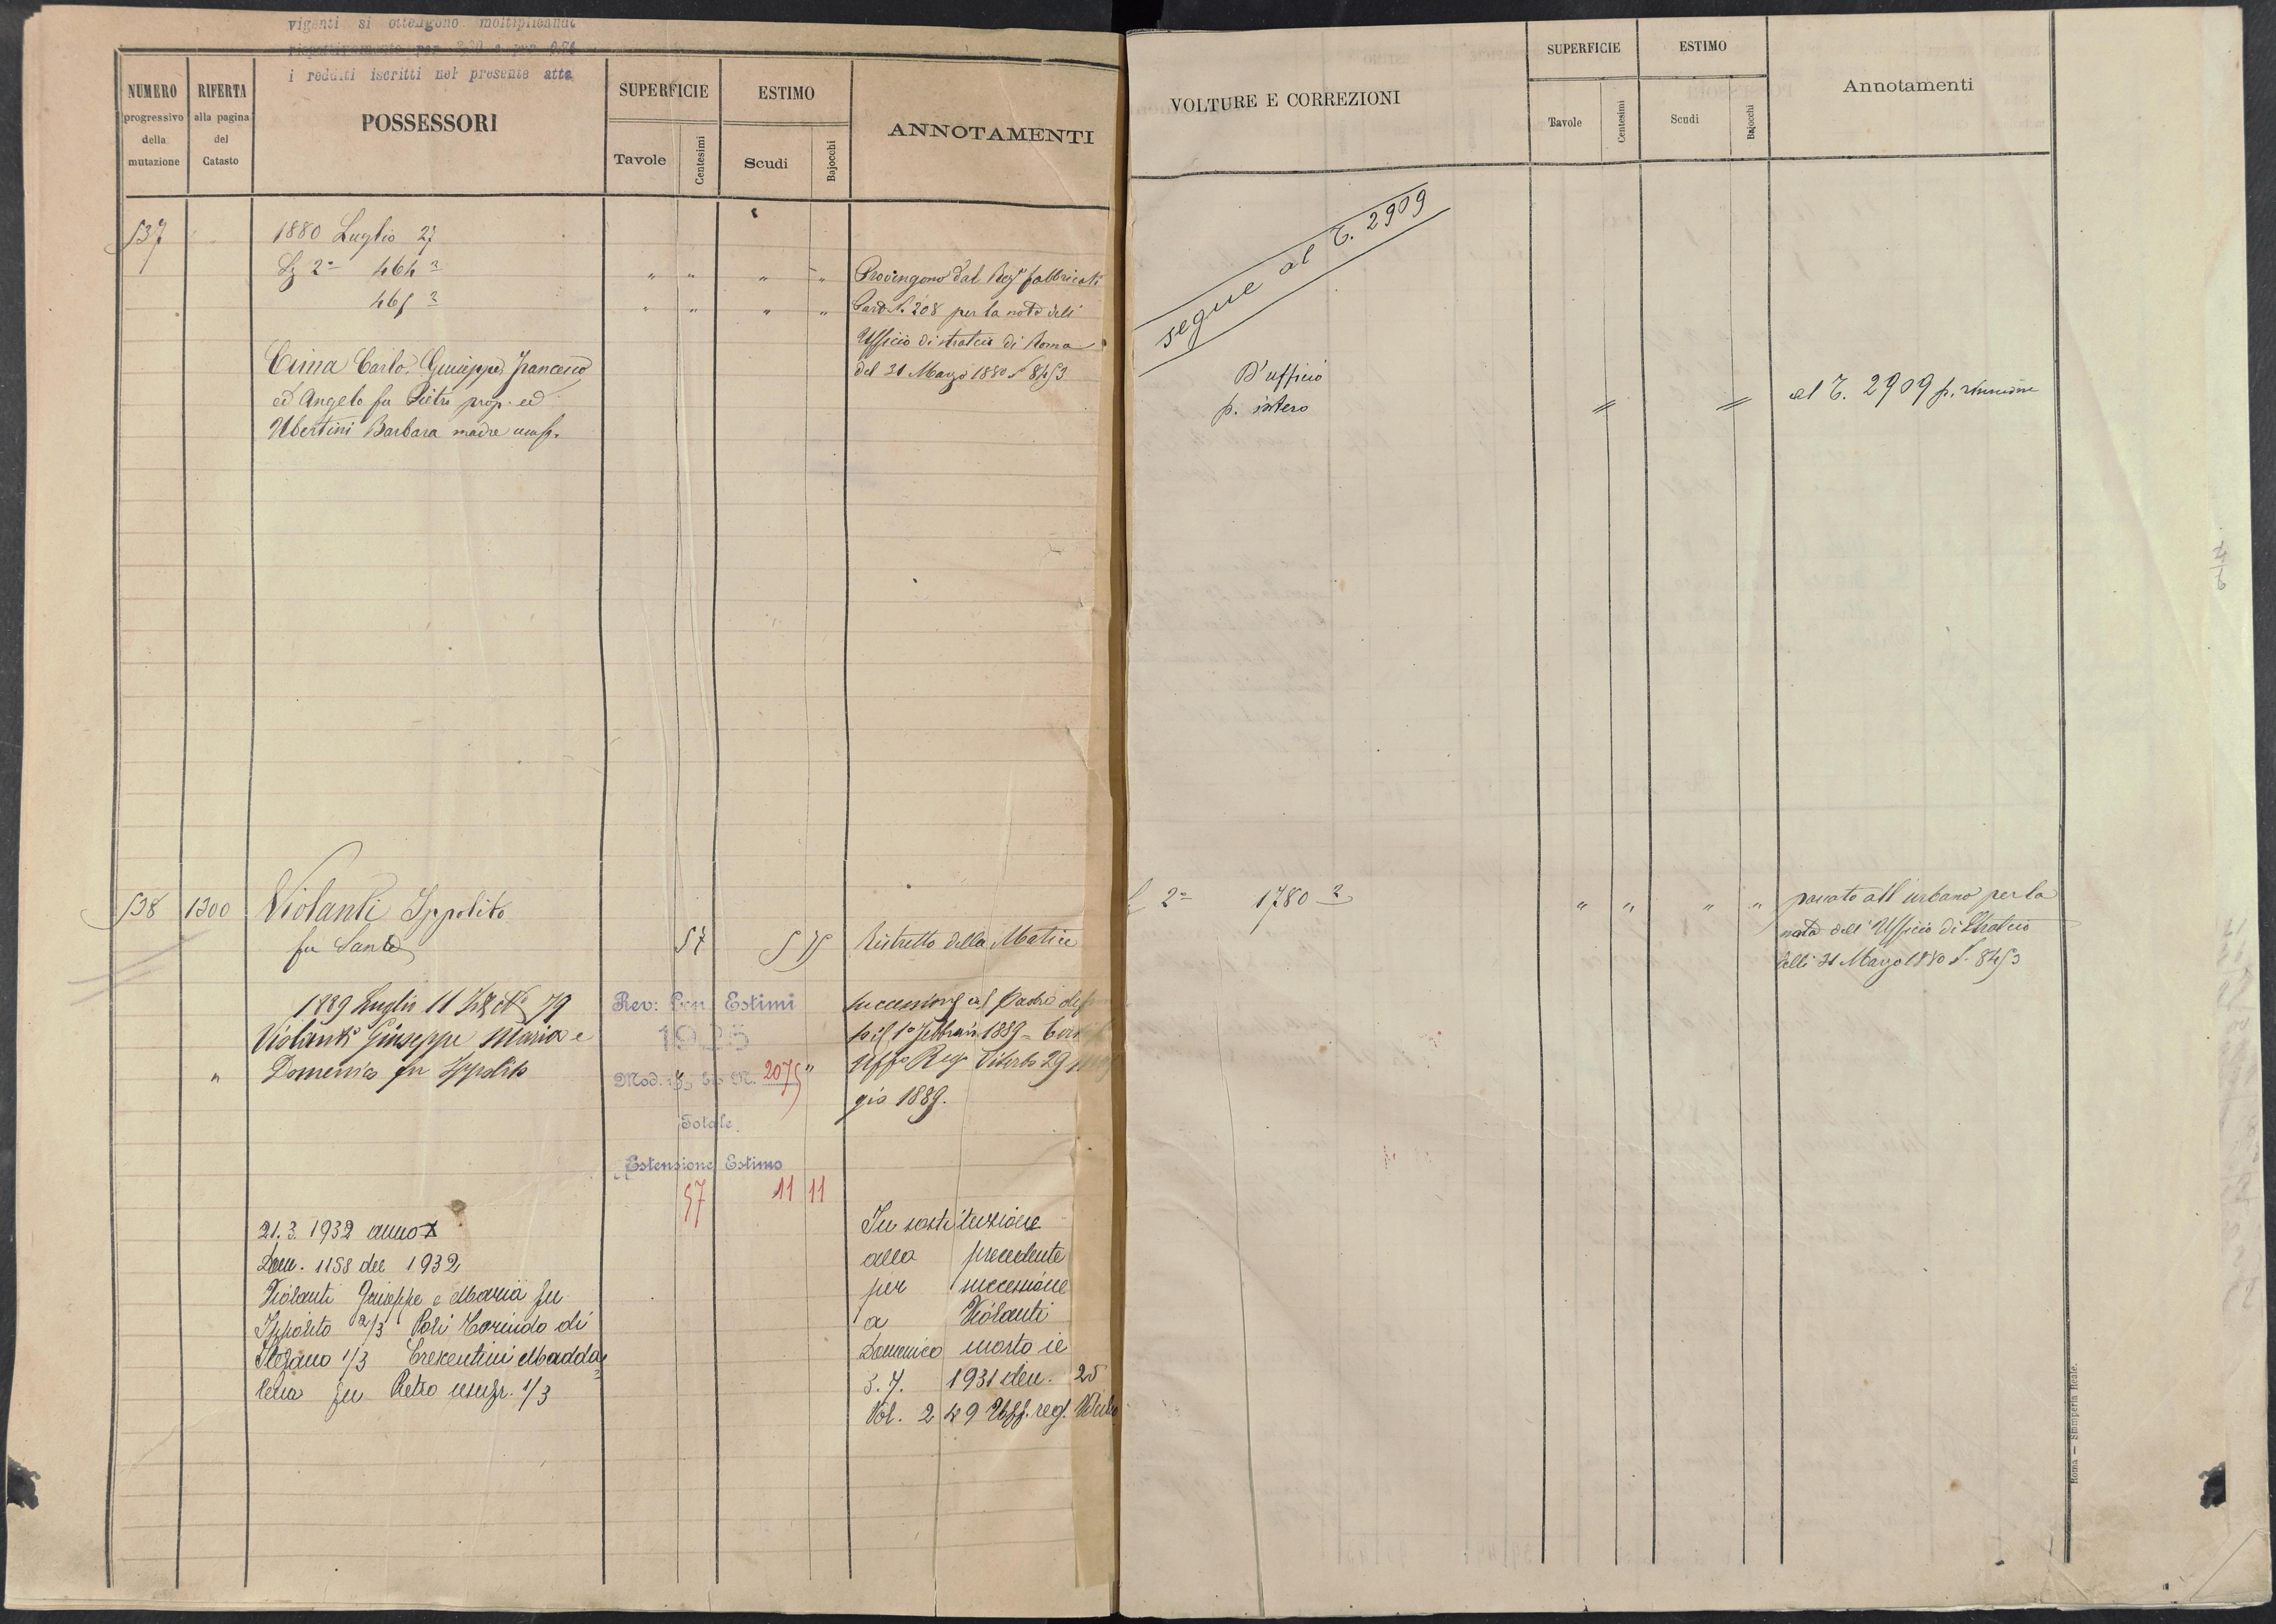 vigenti si ottengono moltiplicando
rispettivamente per
i redditi iscritti nel presente atto
NUMERO
progressivo
della
mutazione
RIFERTA
alla pagina
del
Catasto
POSSESSORI
SUPERFICIE
Tavole
Centesimi
ESTIMO
Scudi
Bajocchi
ANNOTAMENTI
537
1880 Luglio 27
Sz 2ª 464 2
" " " " Provengono dal Reg° fabbricati
465 2
" " " " Part. 208 per la nota dell'
Ufficio di stralcio di Roma
del 31 Marzo 1880 N 8453
Cima Carlo, Giuseppe, Francesco
ed Angelo fu Pietro prop. ed
Ubertini Barbara madre usuf.
538 1300 Violanti Ippolito
fu Sante
57 5 75 Ristretto della Matrice
1889 Luglio 11 N° 79
Violanti Giuseppe Maria e
" Domenico fu Ippolito
Rev: Gen Estimi
1925
Mod. N. 2075
Totale
Estensione Estimo
57 11 11
successione al Padre
il 1° Febbraio 1889 =
Uff° Reg° Viterbo 29
gio 1889.
21. 3. 1932 anno X
Dom. 1158 del 1932
Violanti Giuseppe e Maria fu
Ippolito 2/3 Poli Corindo di
Stefano 1/3 Crescentini Madda=
lena fu Pietro usufr. 1/3
In sostituzione
alla precedente
per successione
a Violanti
Domenico morto il
3. 7. 1931 den. 25
Vol. 249 Uff. reg.
VOLTURE E CORREZIONI
SUPERFICIE
Tavole
Centesimi
ESTIMO
Scudi
Bajocchi
Annotamenti
segue al T. 2909
D'ufficio
p. intero
al T. 2909 p. riunione
2ª 1780 2
" " " " passato all'urbano per la
nota dell'Ufficio di Stralcio
delli 31 Marzo 1880 N. 8453
Roma — Stamperia Reale.